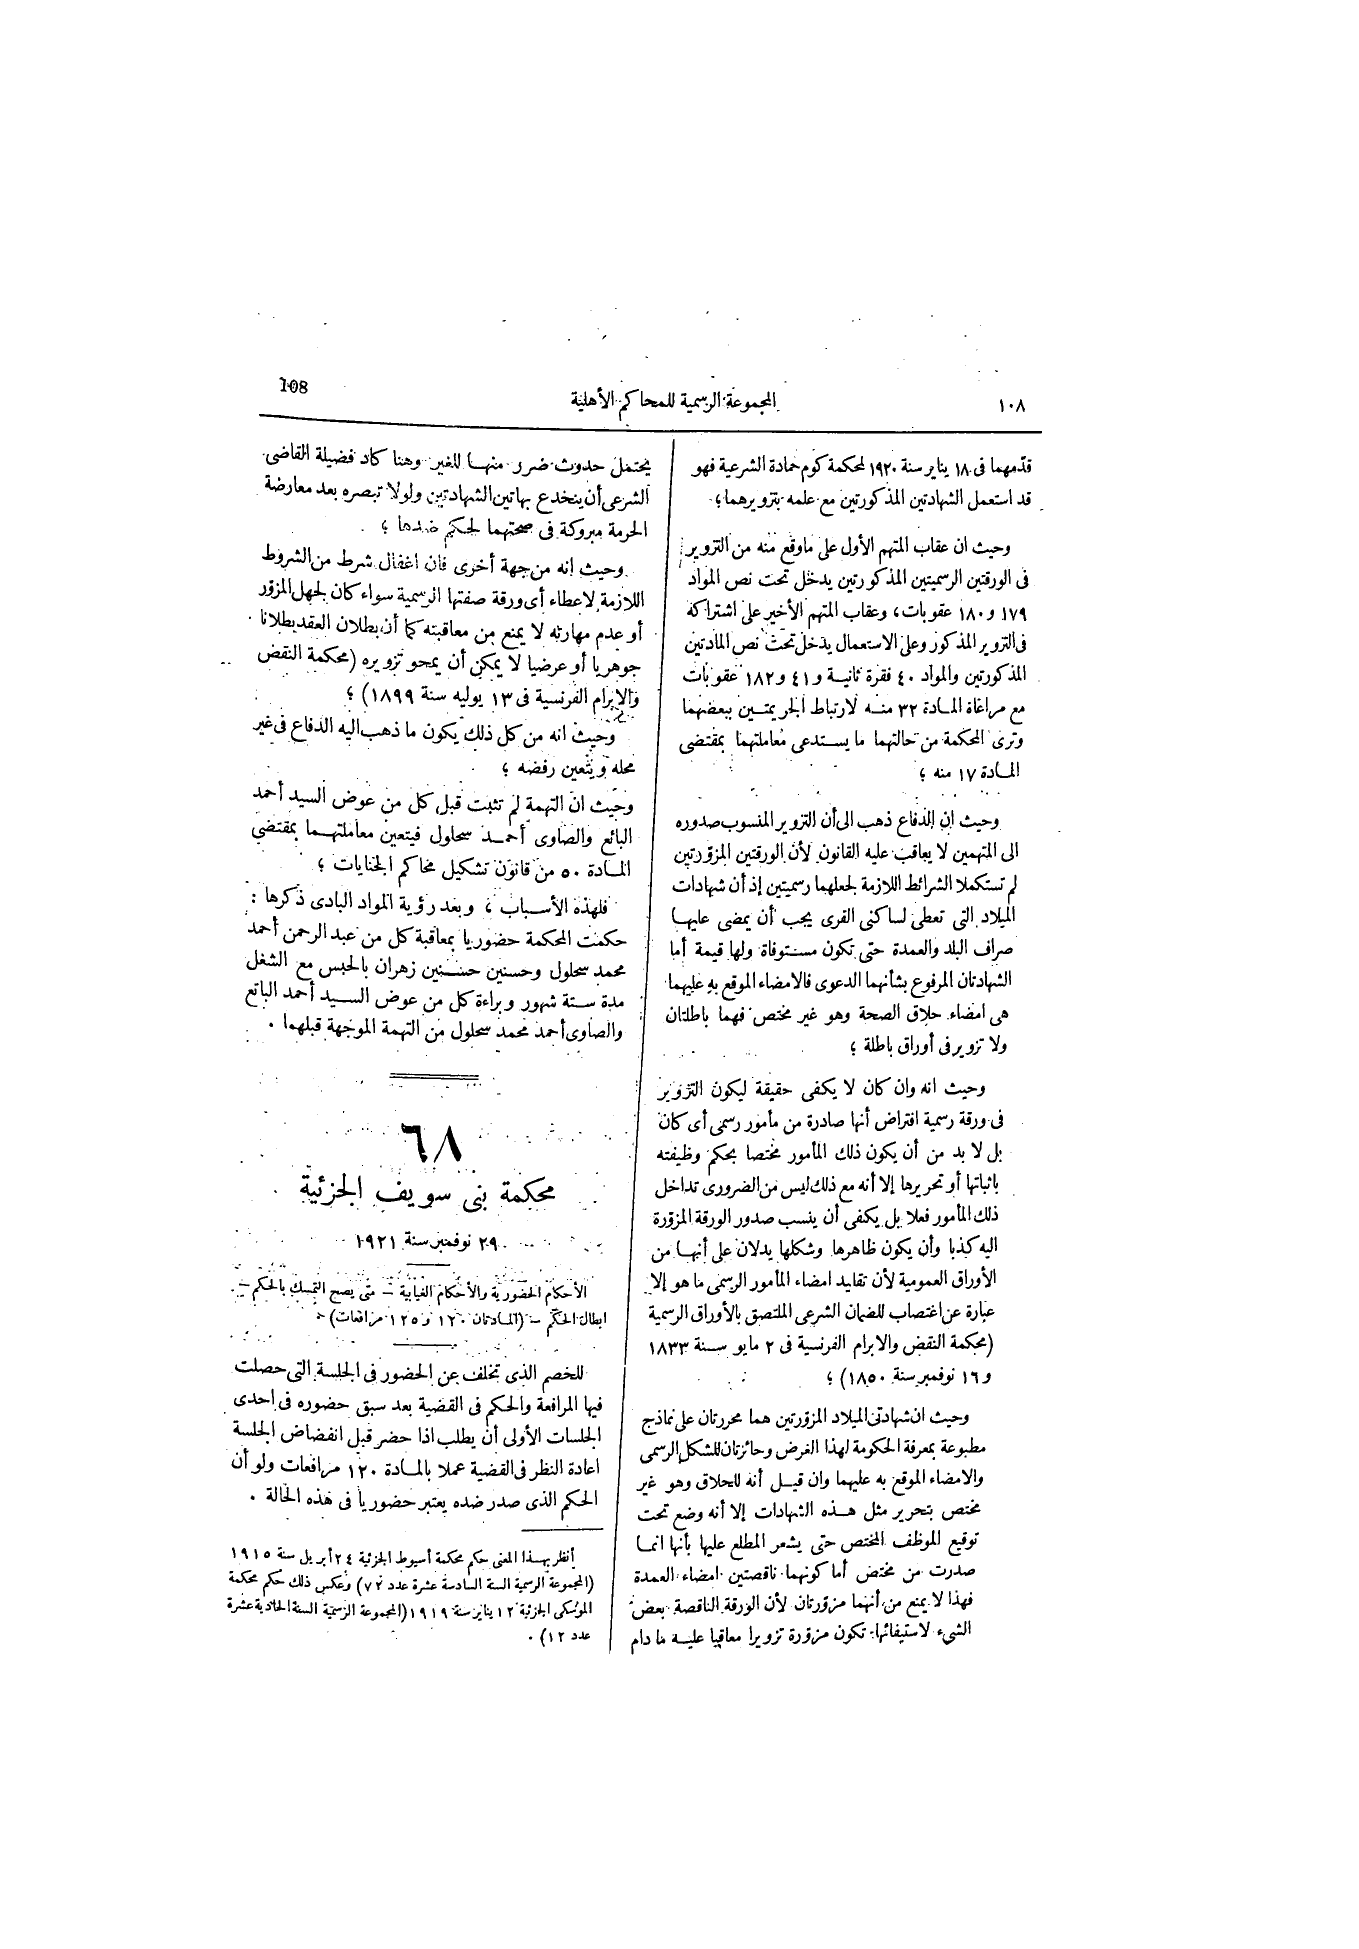 ١٠٨
المجموعة الرسمية للمحاكم الأهلية
108
قدّمهما فى ١٨ يناير سنة ١٩٢٠ لمحكمة كوم حمادة الشرعية فهو
قد استعمل الشهادتين المذكورتين مع علمه بتزويرهما ؛
وحيث ان عقاب المتهم الأول على ماوقع منه من التزوير
فى الورقتين الرسميتين المذكورتين يدخل تحت نص المواد
١٧٩ و ١٨٠ عقوبات ، وعقاب المتهم الأخير على اشتراكه
فى التزوير المذكور وعلى الاستعمال يدخل تحت نص المادتين
المذكورتين والمواد ٤٠ فقرة ثانية و ٤١ و ١٨٢ عقوبات
مع مراعاة المادة ٣٢ منه لارتباط الجريمتين ببعضهما
وترى المحكمة من حالتهما ما يستدعى معاملتهما بمقتضى
المادة ١٧ منه ؛
وحيث ان الدفاع ذهب الى أن التزوير المنسوب صدوره
الى المتهمين لا يعاقب عليه القانون لأن الورقتين المزوّرتين
لم تستكملا الشرائط اللازمة لجعلهما رسميتين إذ أن شهادات
الميلاد التى تعطى لساكنى القرى يجب أن يمضى عليها
صراف البلد والعمدة حتى تكون مستوفاة ولها قيمة أما
الشهادتان المرفوع بشأنهما الدعوى فالامضاء الموقع به عليهما
هى امضاء حلاق الصحة وهو غير مختص فهما باطلتان
ولا تزوير فى أوراق باطلة ؛
وحيث انه وان كان لا يكفى حقيقة ليكون التزوير
فى ورقة رسمية افتراض أنها صادرة من مأمور رسمى أى كان
بل لا بد من أن يكون ذلك المأمور مختصا بحكم وظيفته
باثباتها أو تحريرها إلا أنه مع ذلك ليس من الضرورى تداخل
ذلك المأمور فعلا بل يكفى أن ينسب صدور الورقة المزوّرة
اليه كذبا وأن يكون ظاهرها وشكلها يدلان على أنها من
الأوراق العمومية لأن تقليد امضاء المأمور الرسمى ما هو إلا
عبارة عن اغتصاب للضمان الشرعى الملتصق بالأوراق الرسمية
(محكمة النقض والابرام الفرنسية فى ٢ مايو سنة ١٨٣٣
و ١٦ نوفمبر سنة ١٨٥٠) ؛
وحيث ان شهادتى الميلاد المزوّرتين هما محررتان على نماذج
مطبوعة بمعرفة الحكومة لهذا الغرض وحائزتان للشكل الرسمى
والامضاء الموقع به عليهما وان قيل أنه للحلاق وهو غير
مختص بتحرير مثل هذه الشهادات إلا أنه وضع تحت
توقيع الموظف المختص حتى يشعر المطلع عليها بأنها انما
صدرت من مختص أما كونهما ناقصتين امضاء العمدة
فهذا لا يمنع من أنهما مزوّرتان لأن الورقة الناقصة بعض
الشىء لاستيفائها تكون مزوّرة تزويرا معاقبا عليه ما دام
يحتمل حدوث ضرر منها للغير وهنا كاد فضيلة القاضى
الشرعى أن ينخدع بهاتين الشهادتين ولولا تبصره بعد معارضة
الحرمة مبروكة فى صحتهما لحكم ضدها ؛
وحيث انه من جهة أخرى فان اغفال شرط من الشروط
اللازمة لاعطاء أى ورقة صفتها الرسمية سواء كان لجهل المزوّر
أو عدم مهارته لا يمنع من معاقبته كما أن بطلان العقد بطلانا
جوهريا أو عرضيا لا يمكن أن يمحو تزويره (محكمة النقض
والابرام الفرنسية فى ١٣ يوليه سنة ١٨٩٩) ؛
وحيث انه من كل ذلك يكون ما ذهب اليه الدفاع فى غير
محله ويتعين رفضه ؛
وحيث ان التهمة لم تثبت قبل كل من عوض السيد أحمد
البائع والصاوى أحمد سحلول فيتعين معاملتهما بمقتضى
المادة ٥٠ من قانون تشكيل محاكم الجنايات ؛
فلهذه الأسباب ، وبعد رؤية المواد البادى ذكرها :
حكمت المحكمة حضوريا بمعاقبة كل من عبد الرحمن أحمد
محمد سحلول وحسنين حسنين زهران بالحبس مع الشغل
مدة ستة شهور وبراءة كل من عوض السيد أحمد البائع
والصاوى أحمد محمد سحلول من التهمة الموجهة قبلهما .
٦٨
محكمة بنى سويف الجزئية
٢٩ نوفمبر سنة ١٩٢١
الأحكام الحضورية والأحكام الغيابية – متى يصح التمسك بالحكم –
ابطال الحكم – (المادتان ١٢٠ و ١٢٥ مرافعات)
للخصم الذى تخلف عن الحضور فى الجلسة التى حصلت
فيها المرافعة والحكم فى القضية بعد سبق حضوره فى احدى
الجلسات الأولى أن يطلب اذا حضر قبل انفضاض الجلسة
اعادة النظر فى القضية عملا بالمادة ١٢٠ مرافعات ولو أن
الحكم الذى صدر ضده يعتبر حضوريا فى هذه الحالة .
أنظر بهذا المعنى حكم محكمة أسيوط الجزئية ٢٤ أبريل سنة ١٩١٥
(المجموعة الرسمية السنة السادسة عشرة عدد ٧٢) وعكس ذلك حكم محكمة
الموسكى الجزئية ١٢ يناير سنة ١٩١٩ (المجموعة الرسمية السنة الحادية عشرة
عدد ١٢) .